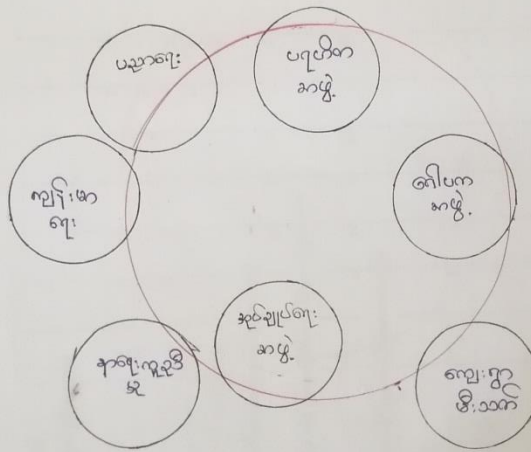 ပညာရေး
ပရဟိတ
အဖွဲ့
ကျန်းမာ
ရေး
ဂေါပက
အဖွဲ့
အုပ်ချုပ်ရေး
အဖွဲ့
နာရေးကူညီ
မှု
ကျေးရွာ
မီးသတ်